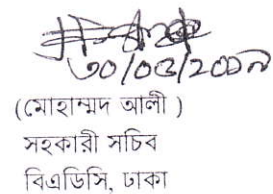 ৩০/০৫/২০১৭
(মোহাম্মদ আলী )
সহকারী সচিব
বিএডিসি, ঢাকা